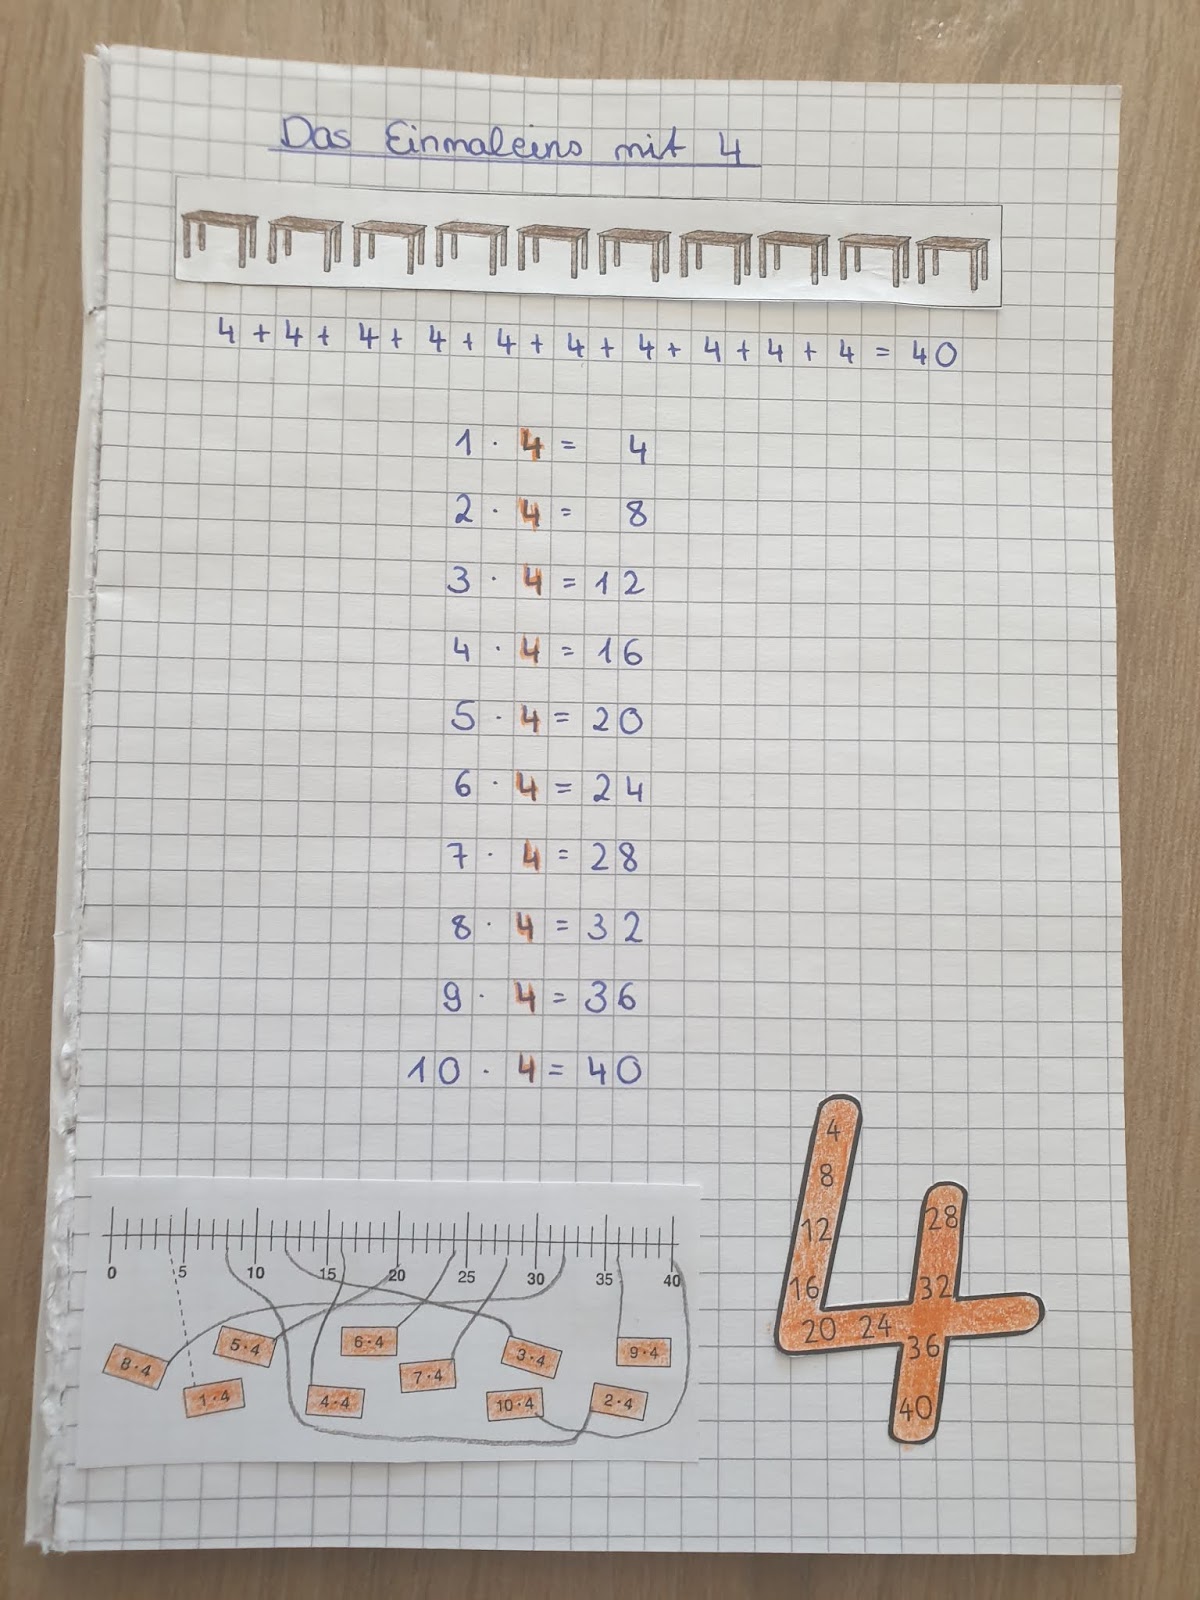 Das Einmaleins mit 4
4 + 4 + 4 + 4 + 4 + 4 + 4 + 4 + 4 + 4 = 40
1 · 4 = 4
2 · 4 = 8
3 · 4 = 12
4 · 4 = 16
5 · 4 = 20
6 · 4 = 24
7 · 4 = 28
8 · 4 = 32
9 · 4 = 36
10 · 4 = 40
0 5 10 15 20 25 30 35 40
8·4 5·4 6·4 3·4 9·4
1·4 4·4 7·4 10·4 2·4
4
8
12 28
16 32
20 24 36
40